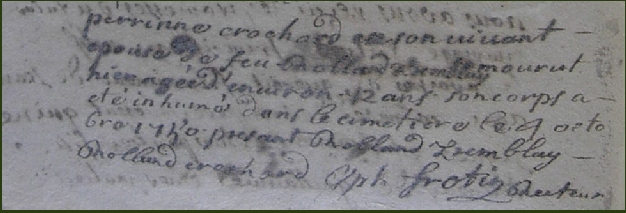 perrinne crochard en son vivant -
epouse de feu Rolland Tremblay mourut
hier agée d'environ 72 ans son corps a
eté inhumé dans le cimetiere le 4 octo
bre 1750 present Rolland Tremblay -
Rolland crochard Jph frotin Recteur